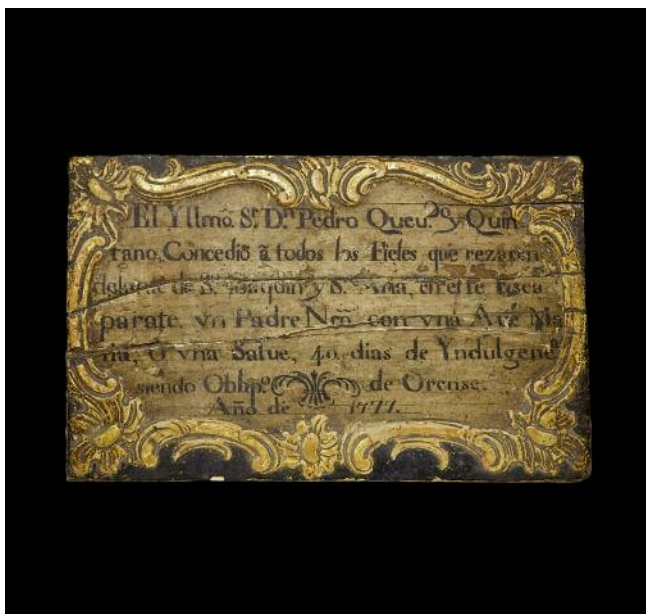 El Yllmô. Sr. Dn. Pedro Queu.do y Quin
tano, Concedió â todos los Fieles que rezaren
delante de Sn. Joaquin y Sa. Ana, en este
parate, vn Padre Nrô. con vna Ave Ma
ria, O vna Salue, 40. dias de Yndulgenc.
siendo Obbp.o de Orense.
Año de 1777.